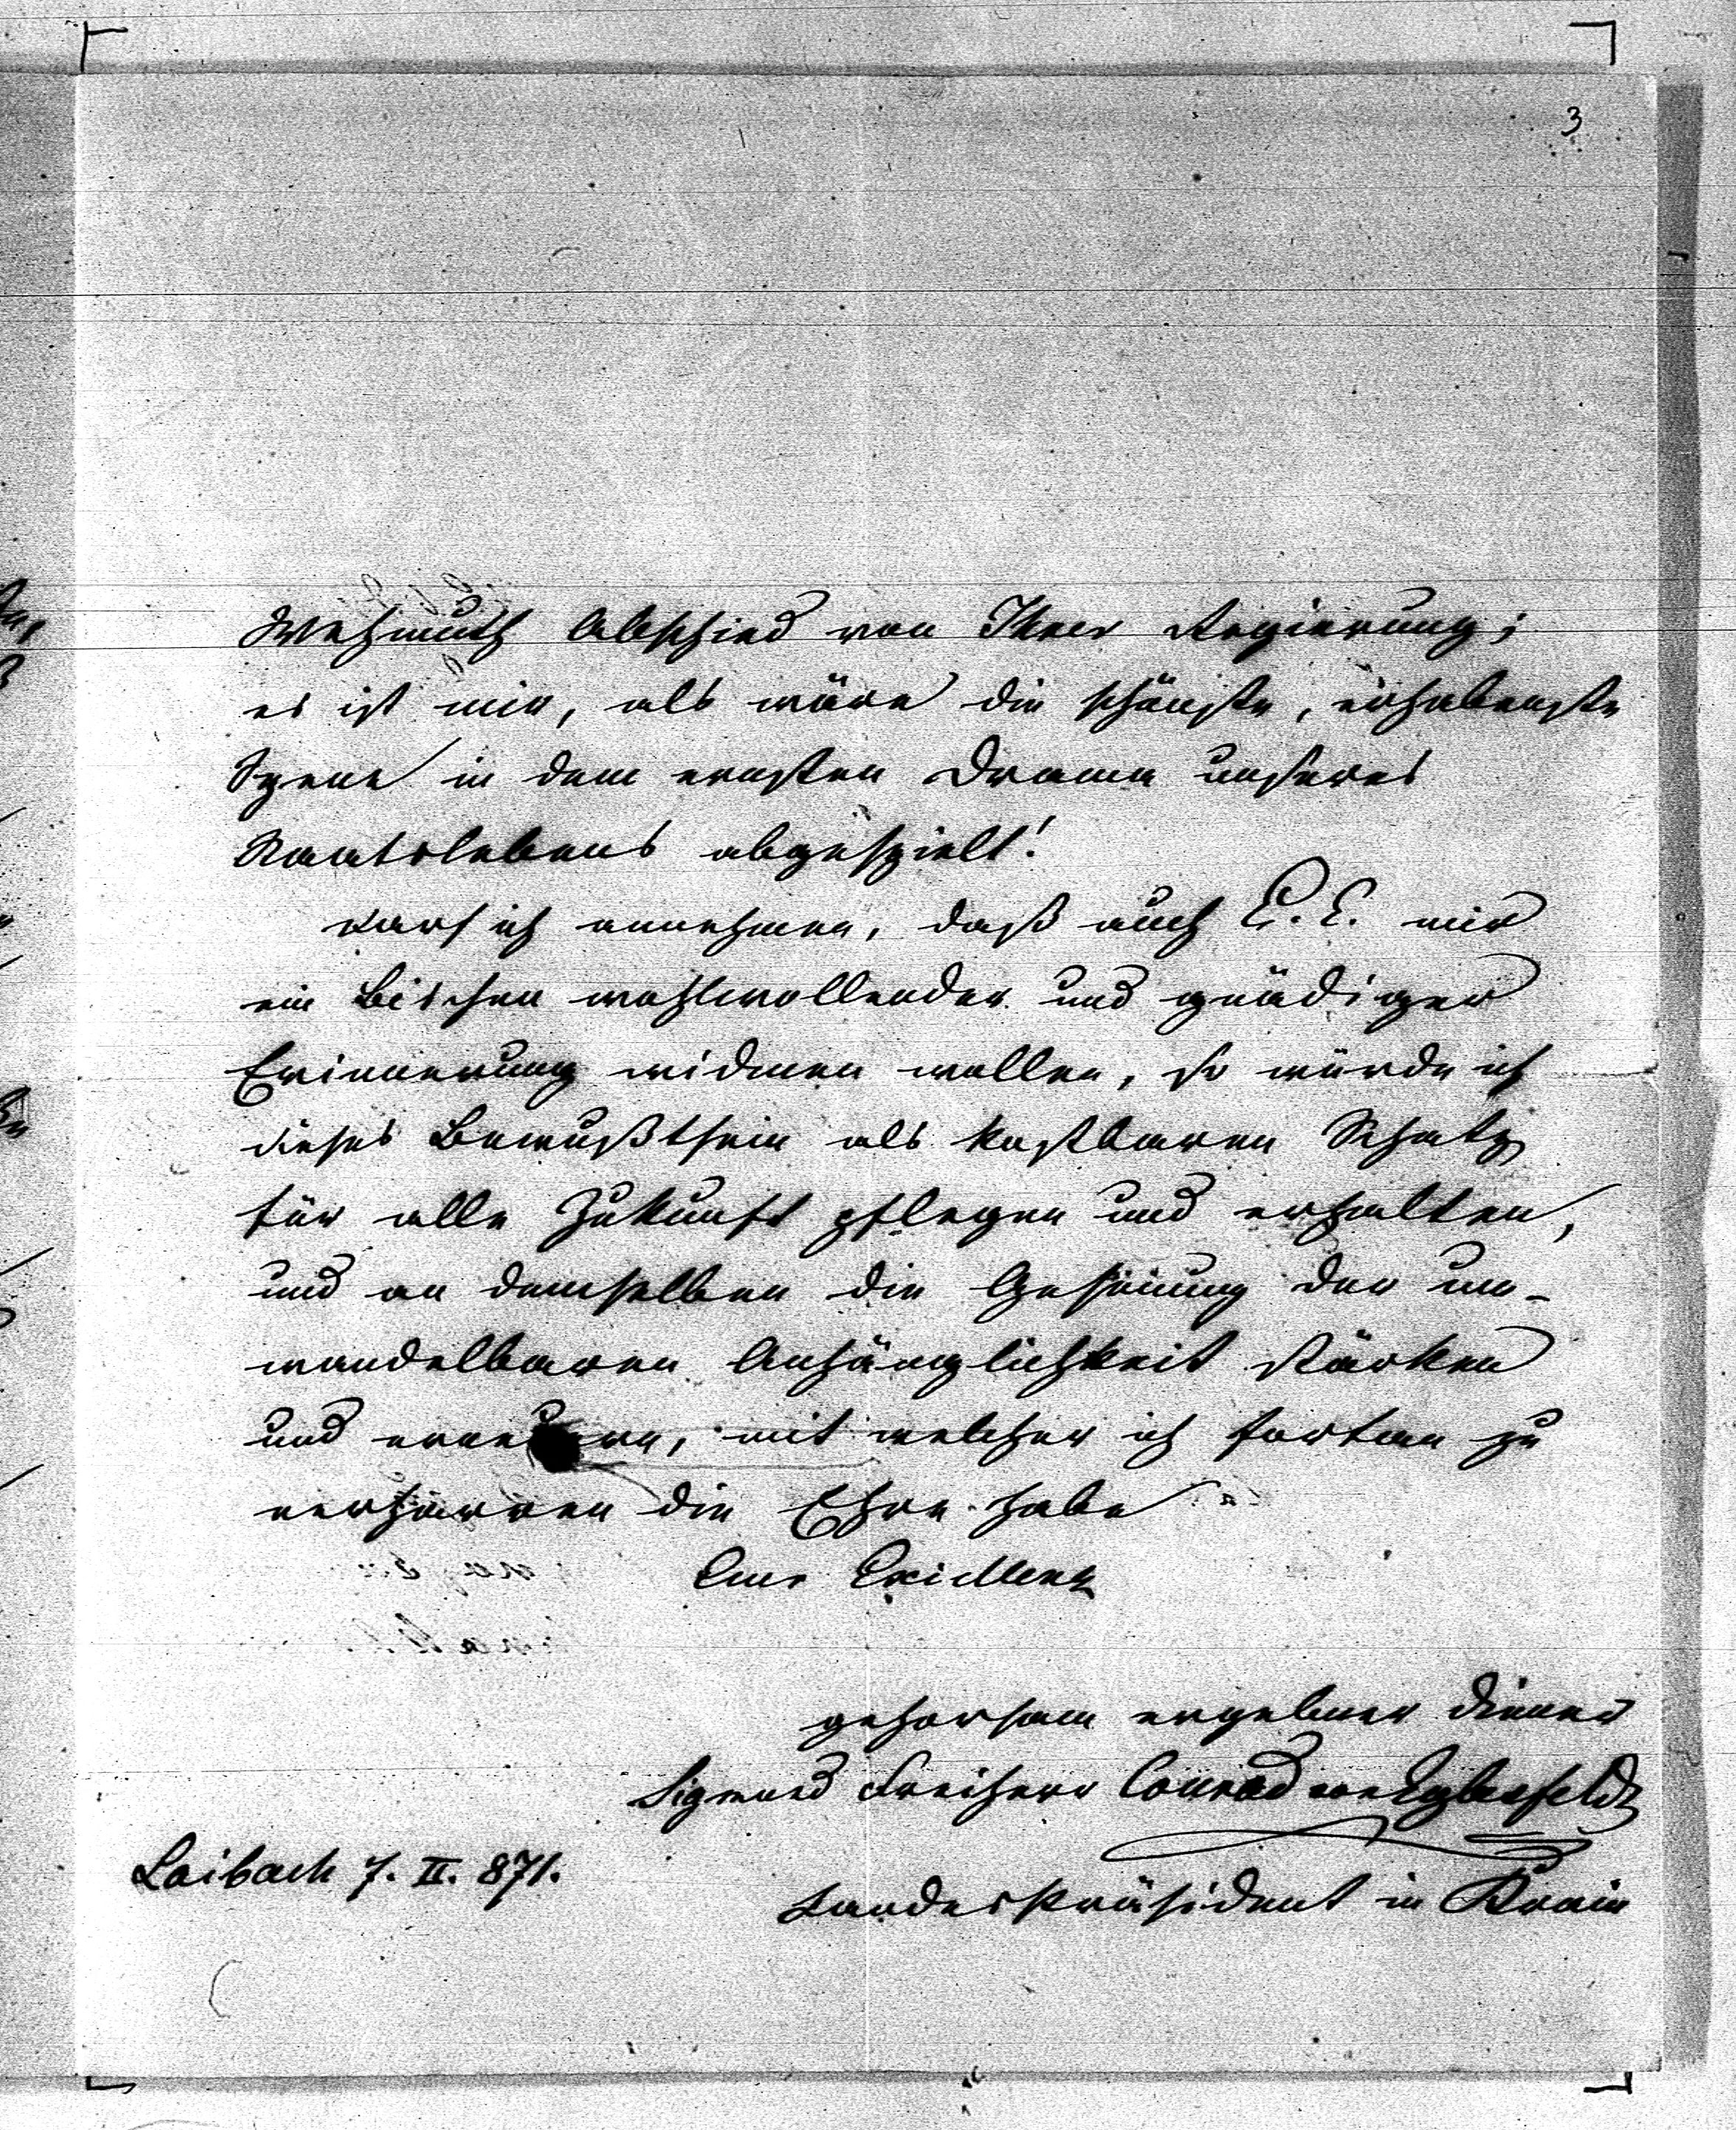 3
Wehmuth Abschied von Ihrer Regierung;
es ist mir, als wäre die schönste, erhabenste
Szene in dem ernsten Drama unseres
Staatslebens abgespielt!
Darf ich annehmen, daß auch E. E. mir
ein Bischen wohlwollender und gnädiger
Erinnerung widmen wollen, so würde ich
dieses Bewußtsein als kostbaren Schatz
für alle Zukunft pflegen und erhalten,
und an demselben die Gesinung der un-
wandelbaren Anhänglichkeit stärken
und erneuern, mit welcher ich fortan zu
verharren die Ehre habe
Euer Excellenz
gehorsam ergebner Diener
Sigmund Freiherr Conrad von Eybesfeld
Laibach 7. II. 871.
Landespräsident in Krain